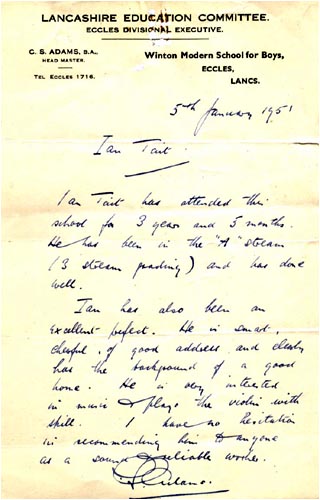 LANCASHIRE EDUCATION COMMITTEE.
ECCLES DIVISIONAL EXECUTIVE.
C. S. ADAMS, B.A.,
HEAD MASTER.
TEL. ECCLES 1716.
Winton Modern School for Boys,
ECCLES,
LANCS.
5th January 1951
Ian Tait.
Ian Tait has attended this
school for 3 years and 5 months.
He has been in the "A" stream
(3 stream grading) and has done
well.
Ian has also been an
excellent prefect. He is smart,
cheerful, of good address and clearly
has the background of a good
home. He is very interested
in music & plays the violin with
skill. I have no hesitation
in recommending him to anyone
as a sound & reliable worker.
C. S. Adams.